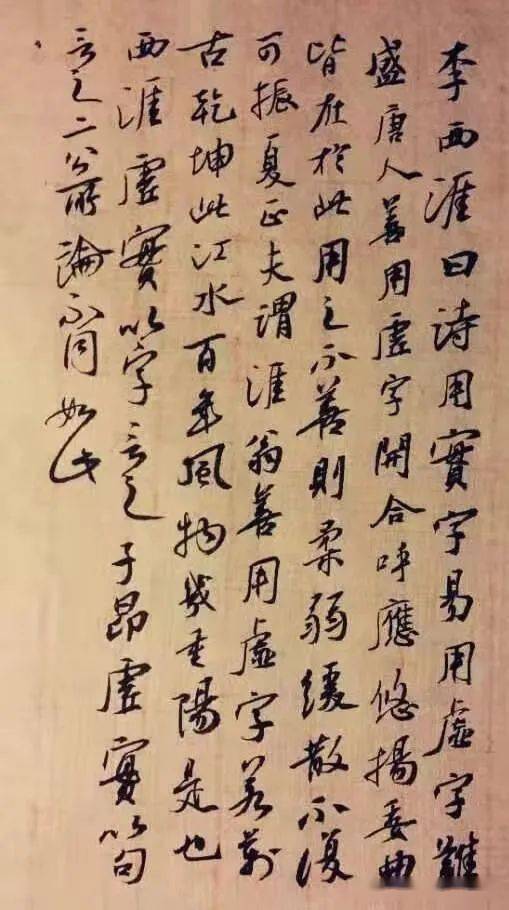 李西涯曰詩用實字易用虛字難
盛唐人善用虛字開合呼應悠揚委曲
皆在於此用之不善則柔弱緩散不復
可振夏正夫謂涯翁善用虛字若萬
古乾坤此江水百年風物幾重陽是也
西涯虛實以字言之子昂虛實以句
言之二公所論不同如此